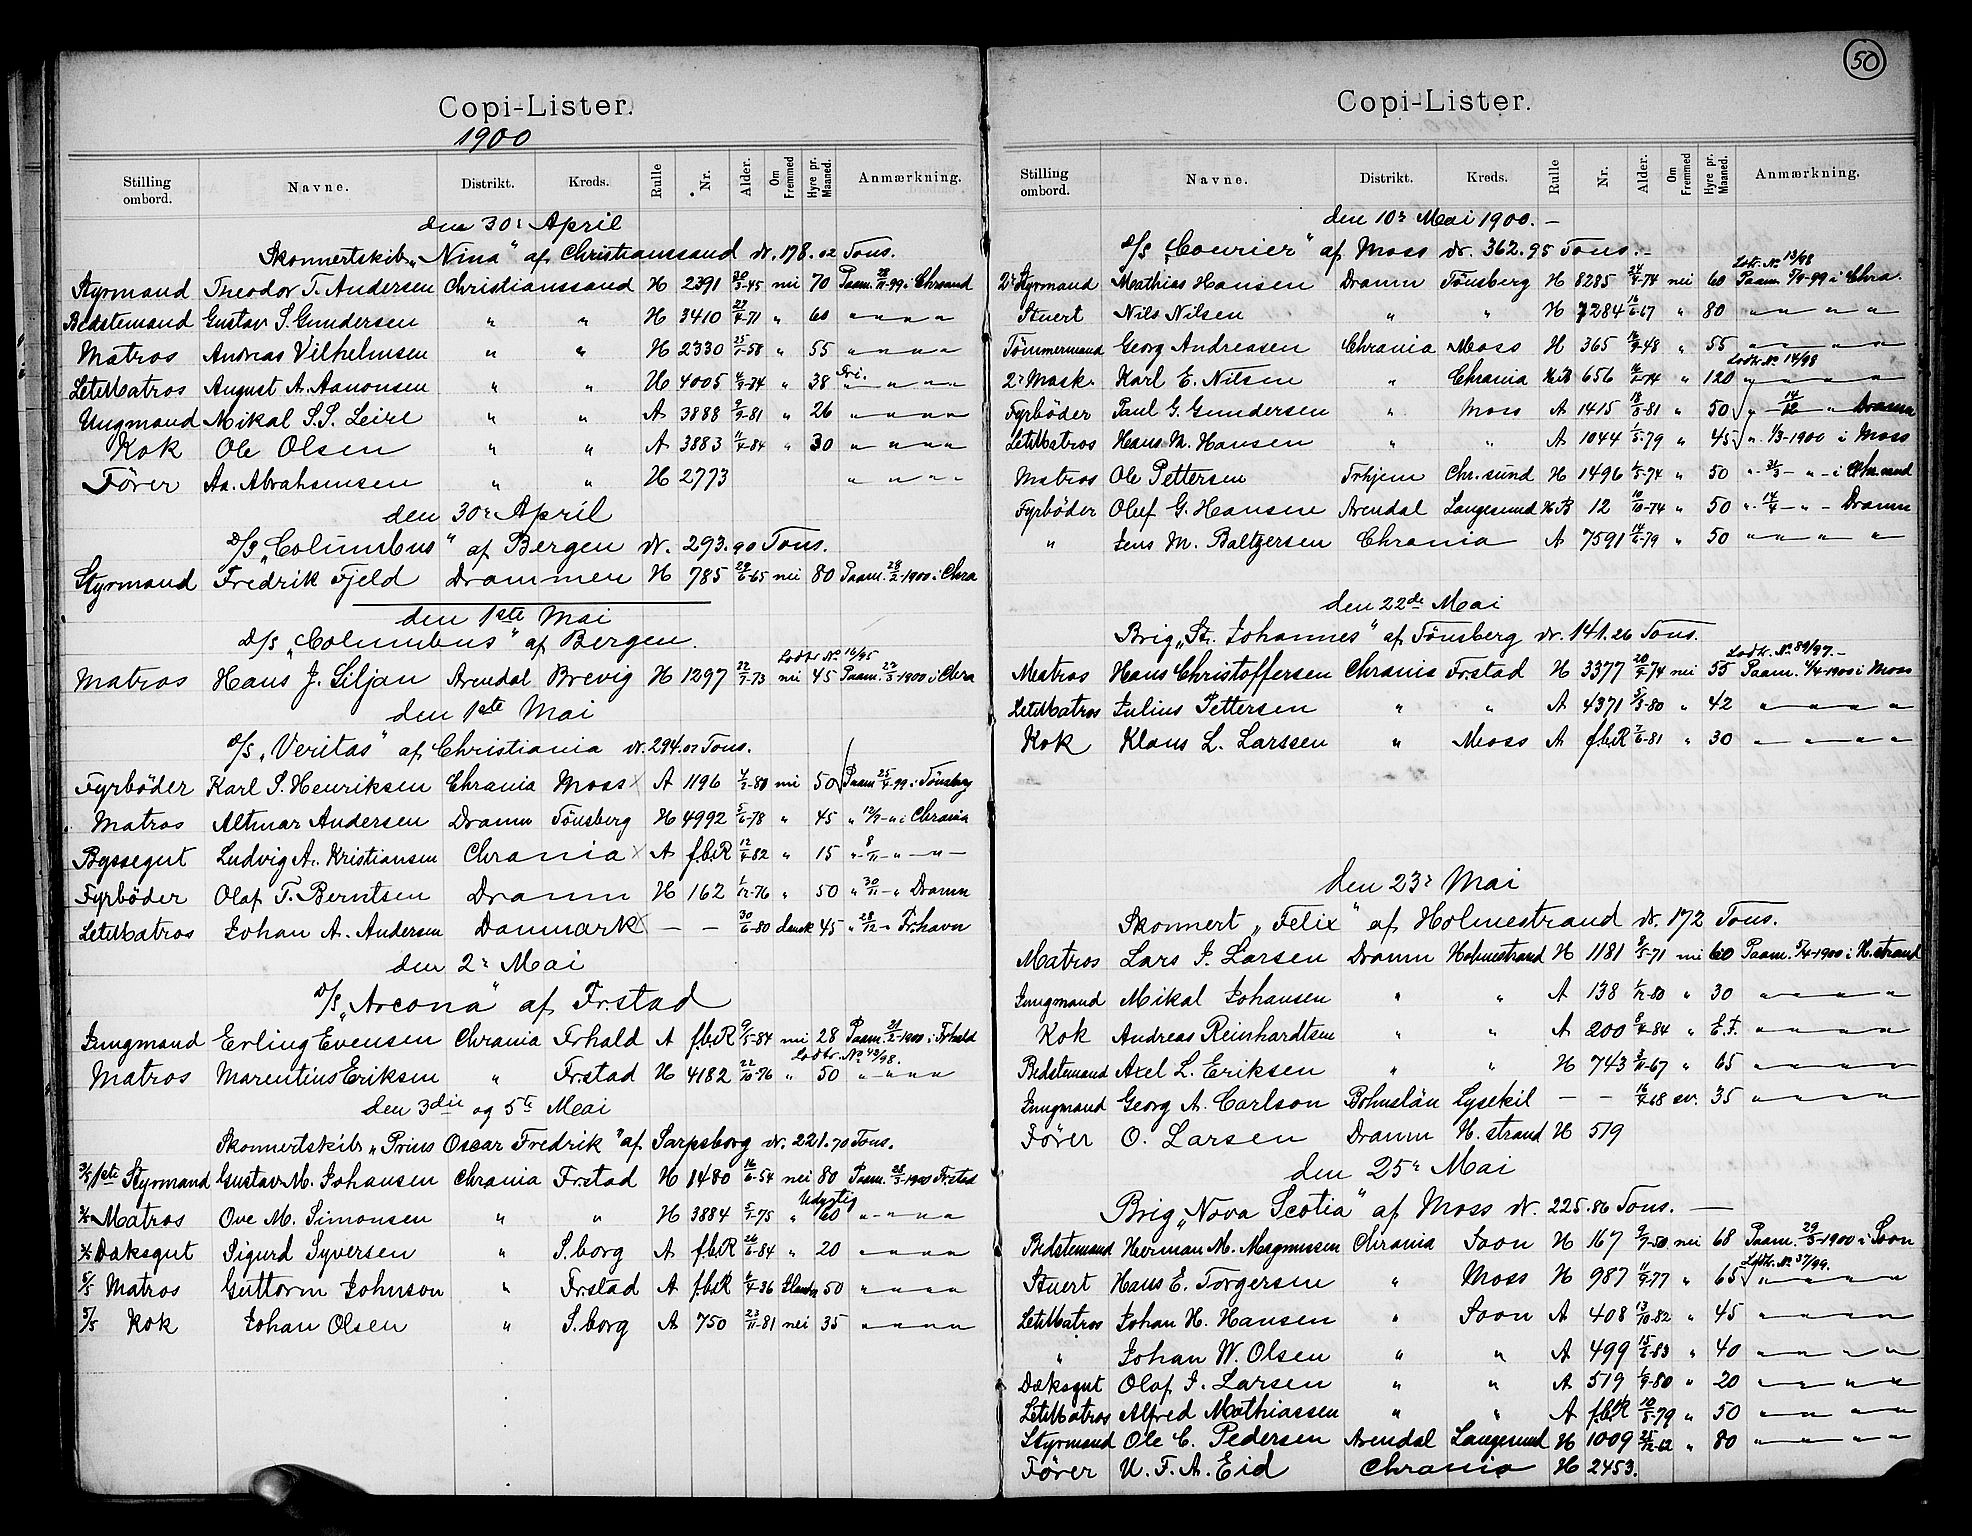 Copi-Lister.
1900
Stilling ombord. Navne. Distrikt. Kreds. Rulle Nr. Alder. Om Fremmed Hyre pr. Maaned. Anmærkning.
den 30. April
Skonnertskib „Nina" af Christianssand dr. 178.02 Tons.
Styrmand Theodor T. Andersen Christianssand H 2391 20/3-45 nei 70 Paam. 28/11-99 i Chrsand
Bedstemand Gustav S. Gundersen " " H 3410 27/4-71 " 60 " " " "
Matros Andreas Vilhelmsen " " H 2330 25/1-58 " 55 " " " "
LetMatros August A. Aanonsen " " H 4005 4/9-74 " 38 " " " "
Ungmand Mikal S.S. Leire " " A 3888 9/9-81 " 26 " " " "
Kok Ole Olsen " " A 3883 11/4-84 " 30 " " " "
Fører Aa. Abrahamsen " " H 2773 " " " "
den 30. April
D/S „Columbus" af Bergen dr. 293.90 Tons.
Styrmand Fredrik Fjeld Drammen H 785 29/6-65 nei 80 Paam. 28/2-1900 i Chra
den 1ste Mai
D/S „Columbus" af Bergen.
Lodtr. No 16/95
Matros Hans J. Siljan Arendal Brevig H 1297 22/1-73 nei 45 Paam. 27/3-1900 i Chra
den 1ste Mai
D/S „Veritas" af Christiania dr. 294.07 Tons.
Fyrbøder Karl S. Henriksen Chrania Moss A 1196 4/2-80 nei 50 Paam. 25/4-99 i Tönsberg
Matros Altmar Andersen Dramn Tönsberg H 4992 5/6-78 " 45 " 12/9 - " i Chrania
Byssegut Ludvig A. Kristiansen Chrania A f.b.R 12/4-82 " 15 " 8/11 - " -
Fyrbøder Olaf T. Berntsen Dramn H 162 1/12-76 " 50 " 30/11 - " Dramn
LetMatros Johan A. Andersen Danmark - - 30/6-80 dansk 45 " 28/12 - " Fr.havn
den 2. Mai
D/S „Arcona" af Fr.stad
Jungmand Erling Evensen Chrania Frhald A f.b.R 9/5-84 nei 28 Paam. 21/2-1900 i Frhald
Lodtr. No 43/98.
Matros Marentius Eriksen " Fr.stad H 4182 22/10-76 " 50 " " " "
den 3die og 5te Mai
Skonnertskib „Prins Oscar Fredrik" af Sarpsborg dr. 221.70 Tons.
3/5 1ste Styrmand Gustav M. Johansen Chrania Fr.stad H 1480 16/6-54 nei 80 Paam. 28/3-1900 Fr.stad
Udygtig
3/5 Matros Ove M. Simonsen " " H 3884 5/1-75 " 60 " " " "
Dæksgut Sigurd Syversen " S.borg A f.b.R 26/6-84 " 20 " " " "
5/5 Matros Guttorm Johnson " Fr.stad A f.b.R 50 " " " "
5/5 Kok Johan Olsen " S.borg A 750 23/11-81 nei 35 " " " "
50
Copi-Lister.
Stilling ombord. Navne. Distrikt. Kreds. Rulle Nr. Alder. Om Fremmed Hyre pr. Maaned. Anmærkning.
den 10. Mai 1900. -
D/S „Courier" af Moss dr. 362.95 Tons. -
Lodtr. No 13/98
2. Styrmand Mathias Hansen Dramn Tönsberg H 8285 24/4-74 nei 60 Paam. 5/9-99 i Chra
Stuert Nils Nilsen " " H 7284 16/6-67 " 80 " " " "
Tømmermand Georg Andreasen Chrania Moss H 365 14/9-48 " 55 " " " "
Lodtr. No 14/98
2. Mask. Karl E. Nilsen " Chrania H.B 656 16/1-74 " 120 " " " "
Fyrbøder Paul G. Gundersen " Moss A 1415 18/5-81 " 50 " 14/12 " Dramn
LetMatros Hans M. Hansen " " A 1044 1/5-79 " 45 " 1/3-1900 i Moss
Matros Ole Pettersen Trhjem Chr.sund H 1496 1/5-74 " 50 " 31/3 - " - i Chr.sund
Fyrbøder Oluf G. Hansen Arendal Langesund H.B 12 10/10-74 " 50 " 14/4 - " - Dramn
" Jens M. Baltzersen Chrania A 7591 14/6-79 " 50 " " " "
den 22de Mai
Brig „St. Johannes" af Tönsberg dr. 141.26 Tons.
Lodtr. No 89/97. -
Matros Hans Christoffersen Chrania Fr.stad H 3377 20/4-74 nei 55 Paam. 4/4-1900 i Moss
LetMatros Julius Pettersen " " A 4371 5/3-80 " 42 " " " "
Kok Klaus L. Larssen " Moss A f.b.R 7/6-81 " 30 " " " "
den 23. Mai
Skonnert „Felix" af Holmestrand dr. 172 Tons.
Matros Lars J. Larsen Dramn Holmestrand H 1181 9/5-71 nei 60 Paam. 5/4-1900 i H.strand
Jungmand Mikal Johansen " " A 138 1/12-80 " 30 " " " "
Kok Andreas Reinhardtsen " " A 200 8/4-84 " E.F. " " " "
Bedstemand Axel L. Eriksen " " H 743 3/11-67 " 65 " " " "
Jungmand Georg A. Carlson Bohuslän Lysekil - - 16/4-68 sv. 35 " " " "
Fører O. Larsen Dramn H.strand H 519
den 25. Mai
Brig „Nova Scotia" af Moss dr. 225.86 Tons. -
Bedstemand Herman M. Magnussen Chrania Soon H 167 9/7-50 nei 68 Paam. 29/3-1900 i Soon
Lodtr. No 37/99.
Stuert Hans E. Torgersen " Moss H 987 11/9-77 " 65 " " " "
LetMatros Johan H. Hansen " Soon A 408 13/10-82 " 45 " " " "
" Johan W. Olsen " " A 499 15/2-83 " 40 " " " "
Dæksgut Olaf J. Larsen " " A 519 1/9-80 " 20 " " " "
LetMatros Alfred Mathiassen " " A f.b.R 10/5-79 " 50 " " " "
Styrmand Ole C. Pedersen Arendal Langesund H 1009 25/12-62 " 80 " " " "
Fører U. F. A. Eid Chrania H 2453.